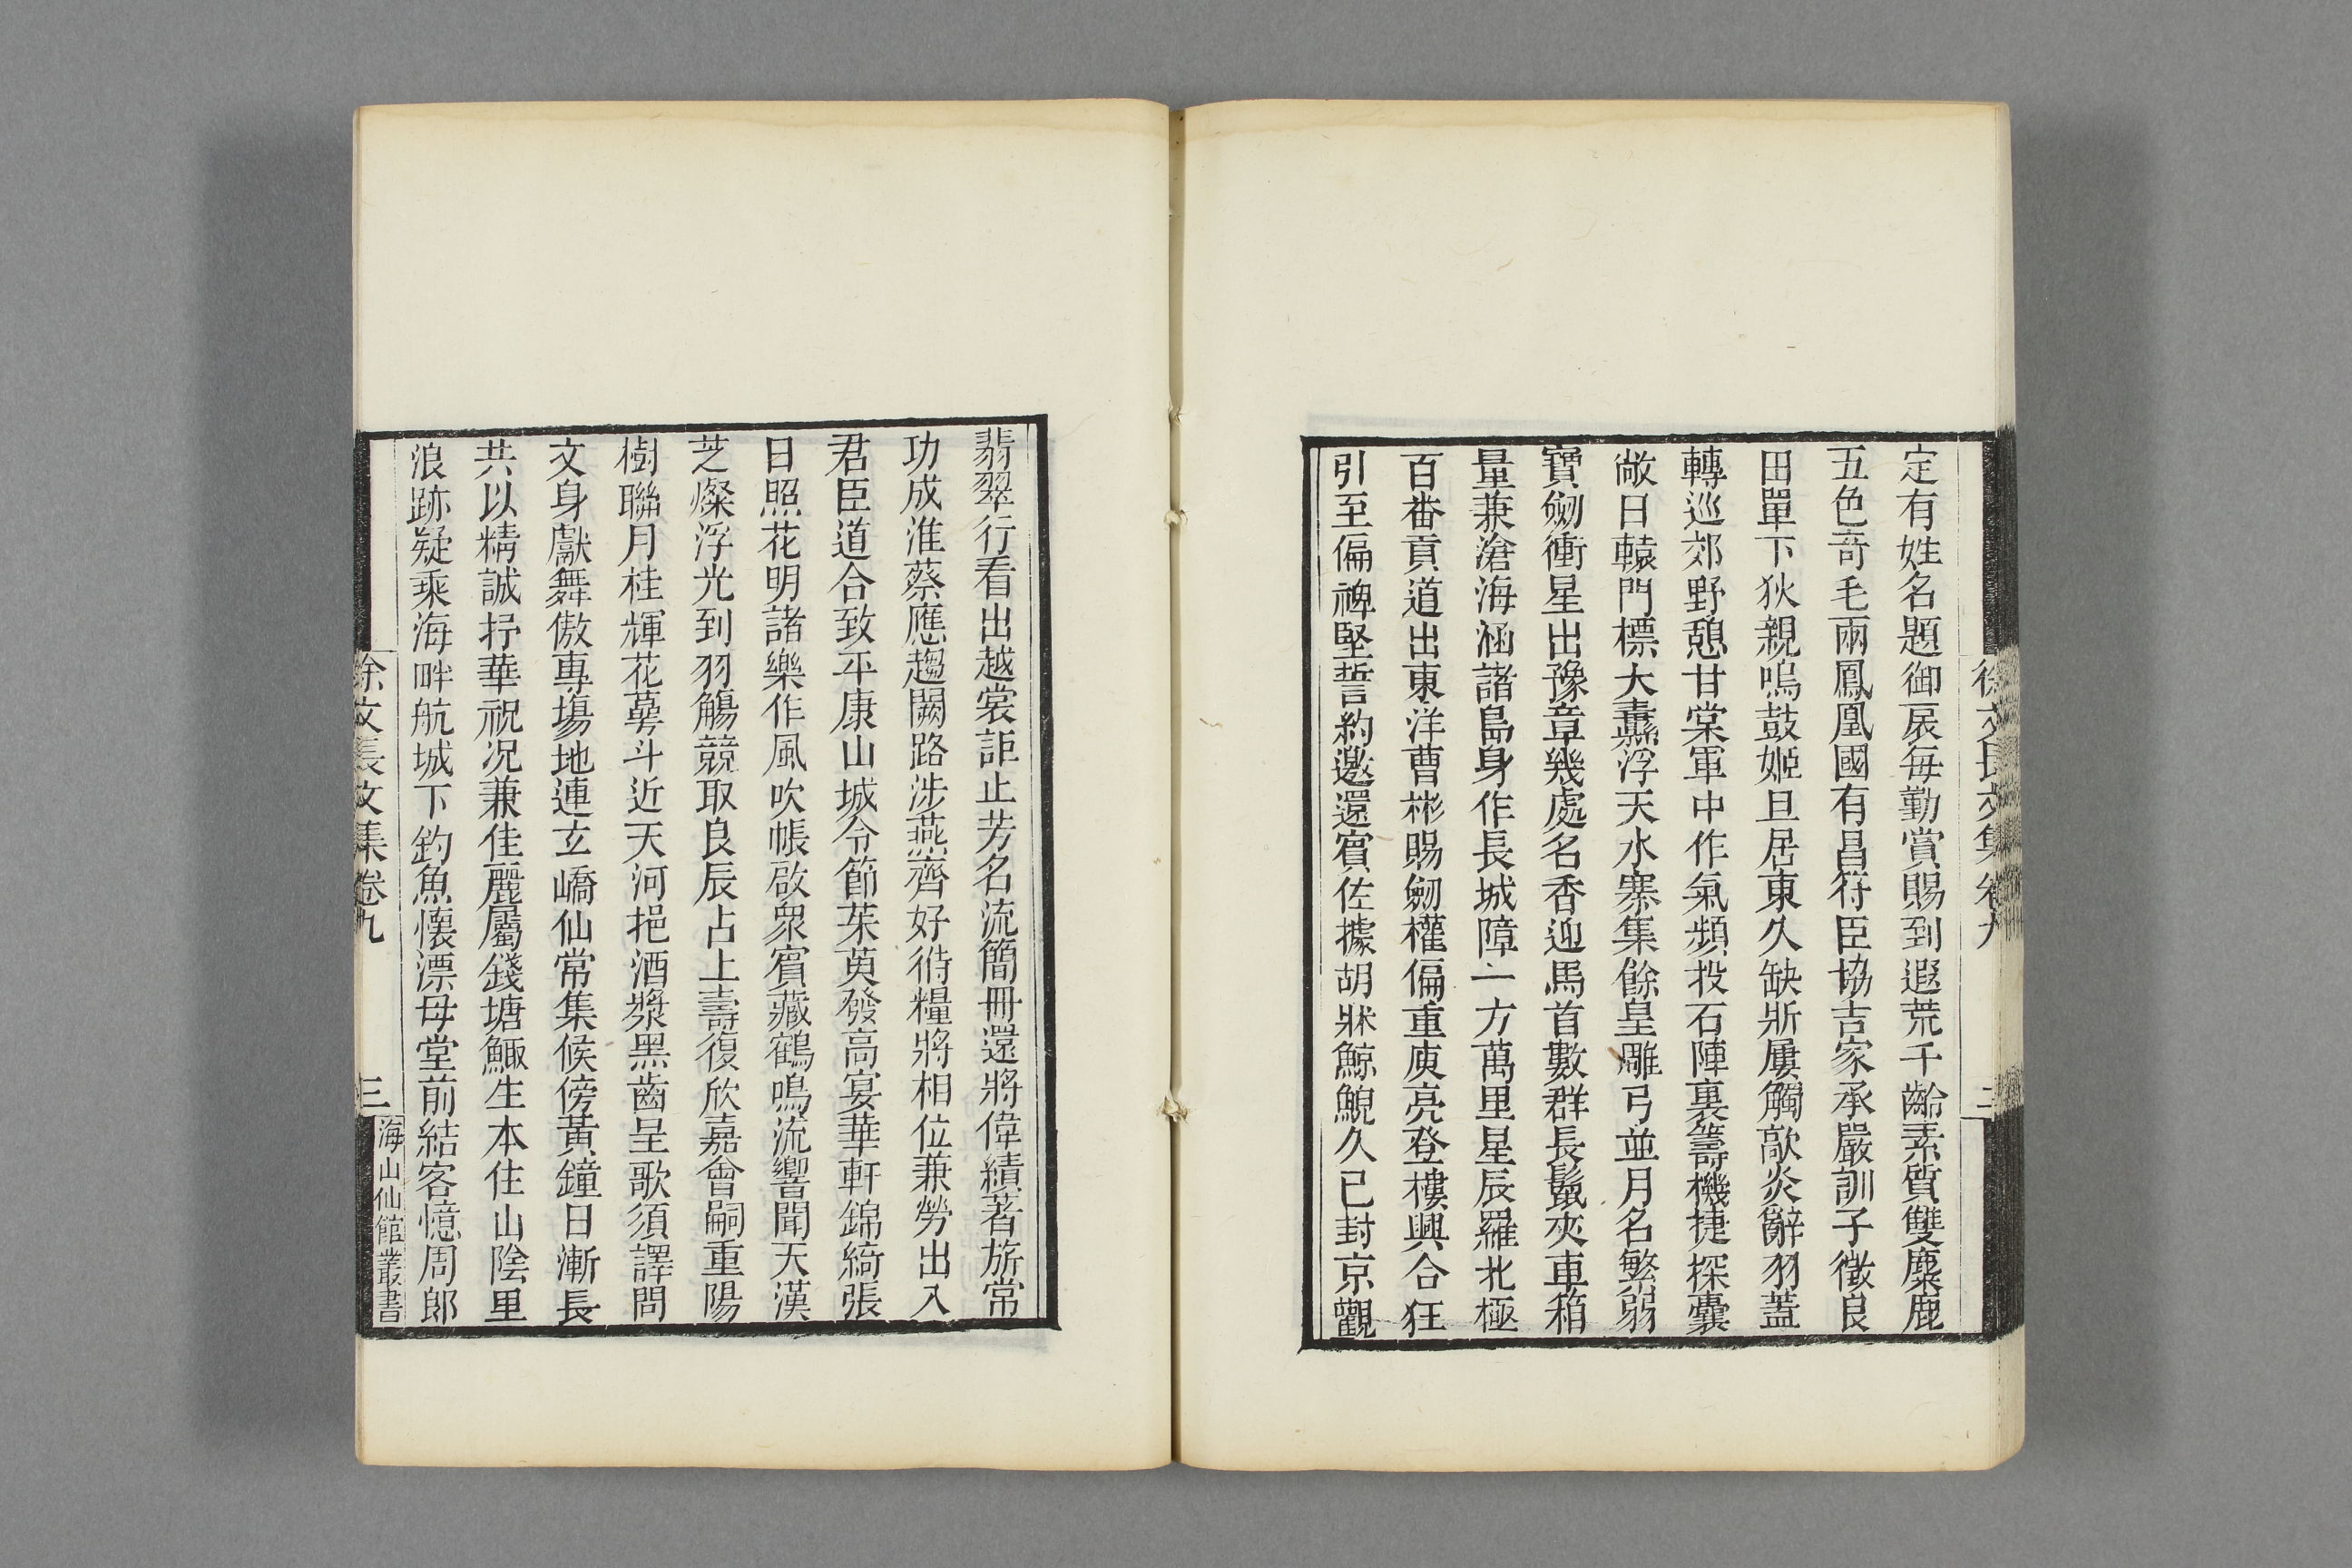 定有姓名題御扆每勤賞賜到遐荒千齡素質雙麋鹿
五色奇毛兩鳳凰國有昌符臣協吉家承嚴訓子徵良
田單下狄親鳴鼓姬旦居東久缺斨屢觸歊炎辭羽蓋
轉巡郊野憩甘棠軍中作氣頻投石陣裏籌機捷探囊
敞日轅門標大纛浮天水寨集餘皇雕弓並月名繁弱
寶劒衝星出豫章幾處名香迎馬首數群長鬣夾車箱
量兼滄海涵諸島身作長城障一方萬里星辰羅北極
百番貢道出東洋曹彬賜劒權偏重庾亮登樓興合狂
引至偏裨堅誓約邀還賓佐據胡牀鯨鯢久已封京觀
徐文長文集 卷九 二
翡翠行看出越裳詎止芳名流簡冊還將偉績著旂常
功成淮蔡應趨闕路涉燕齊好偫糧將相位兼勞出入
君臣道合致平康山城令節茱萸發高宴華軒錦綺張
日照花明諸樂作風吹帳啟衆賓藏鶴鳴流響聞天漢
芝燦浮光到羽觴競取良辰占上壽復欣嘉會嗣重陽
樹聯月桂輝花萼斗近天河挹酒漿黑齒呈歌須譯問
文身獻舞傲專場地連玄嶠仙常集候傍黃鐘日漸長
共以精誠抒華祝况兼佳麗屬錢塘鯫生本住山陰里
浪跡疑乘海畔航城下釣魚懷漂母堂前結客憶周郎
徐文長文集 卷九 三 海山仙館叢書